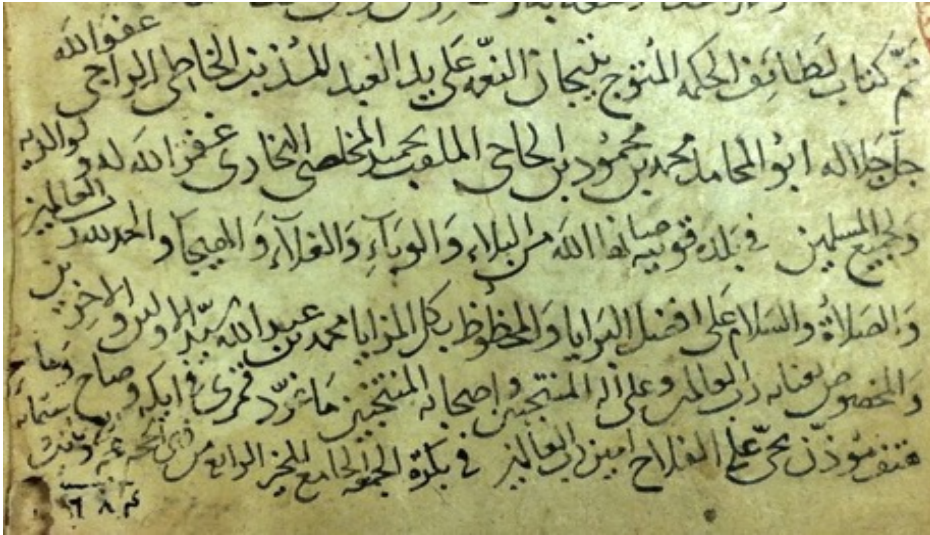 تم كتاب لطائف الحكمة المتوج بتيجان النعمة على يد العبد المذنب الخاطئ الراجي عفو الله
جل جلاله ابو المحامد محمد بن محمود بن الحاجي الملقب بحميد المخلصي البخاري غفر الله له ولوالديه
ولجميع المسلمين في بلدة قونيه صانها الله من البلاء والوباء والغلاء والحمد لله رب العالمين
والصلاة والسلام على افضل البرايا والمحظوظ بكل المزايا محمد بن عبد الله سيد الاولين والاخرين
والمخصوص بعناية رب العالمين وعلى اله المنتجبين واصحابه المنتخبين ما غرد قمري في ايكه وصاح
هتف مؤذن بحي على الفلاح امين رب العالمين في بكرة الجمعة الجامع للخير الرابع من ذي الحجة
٦٨٤